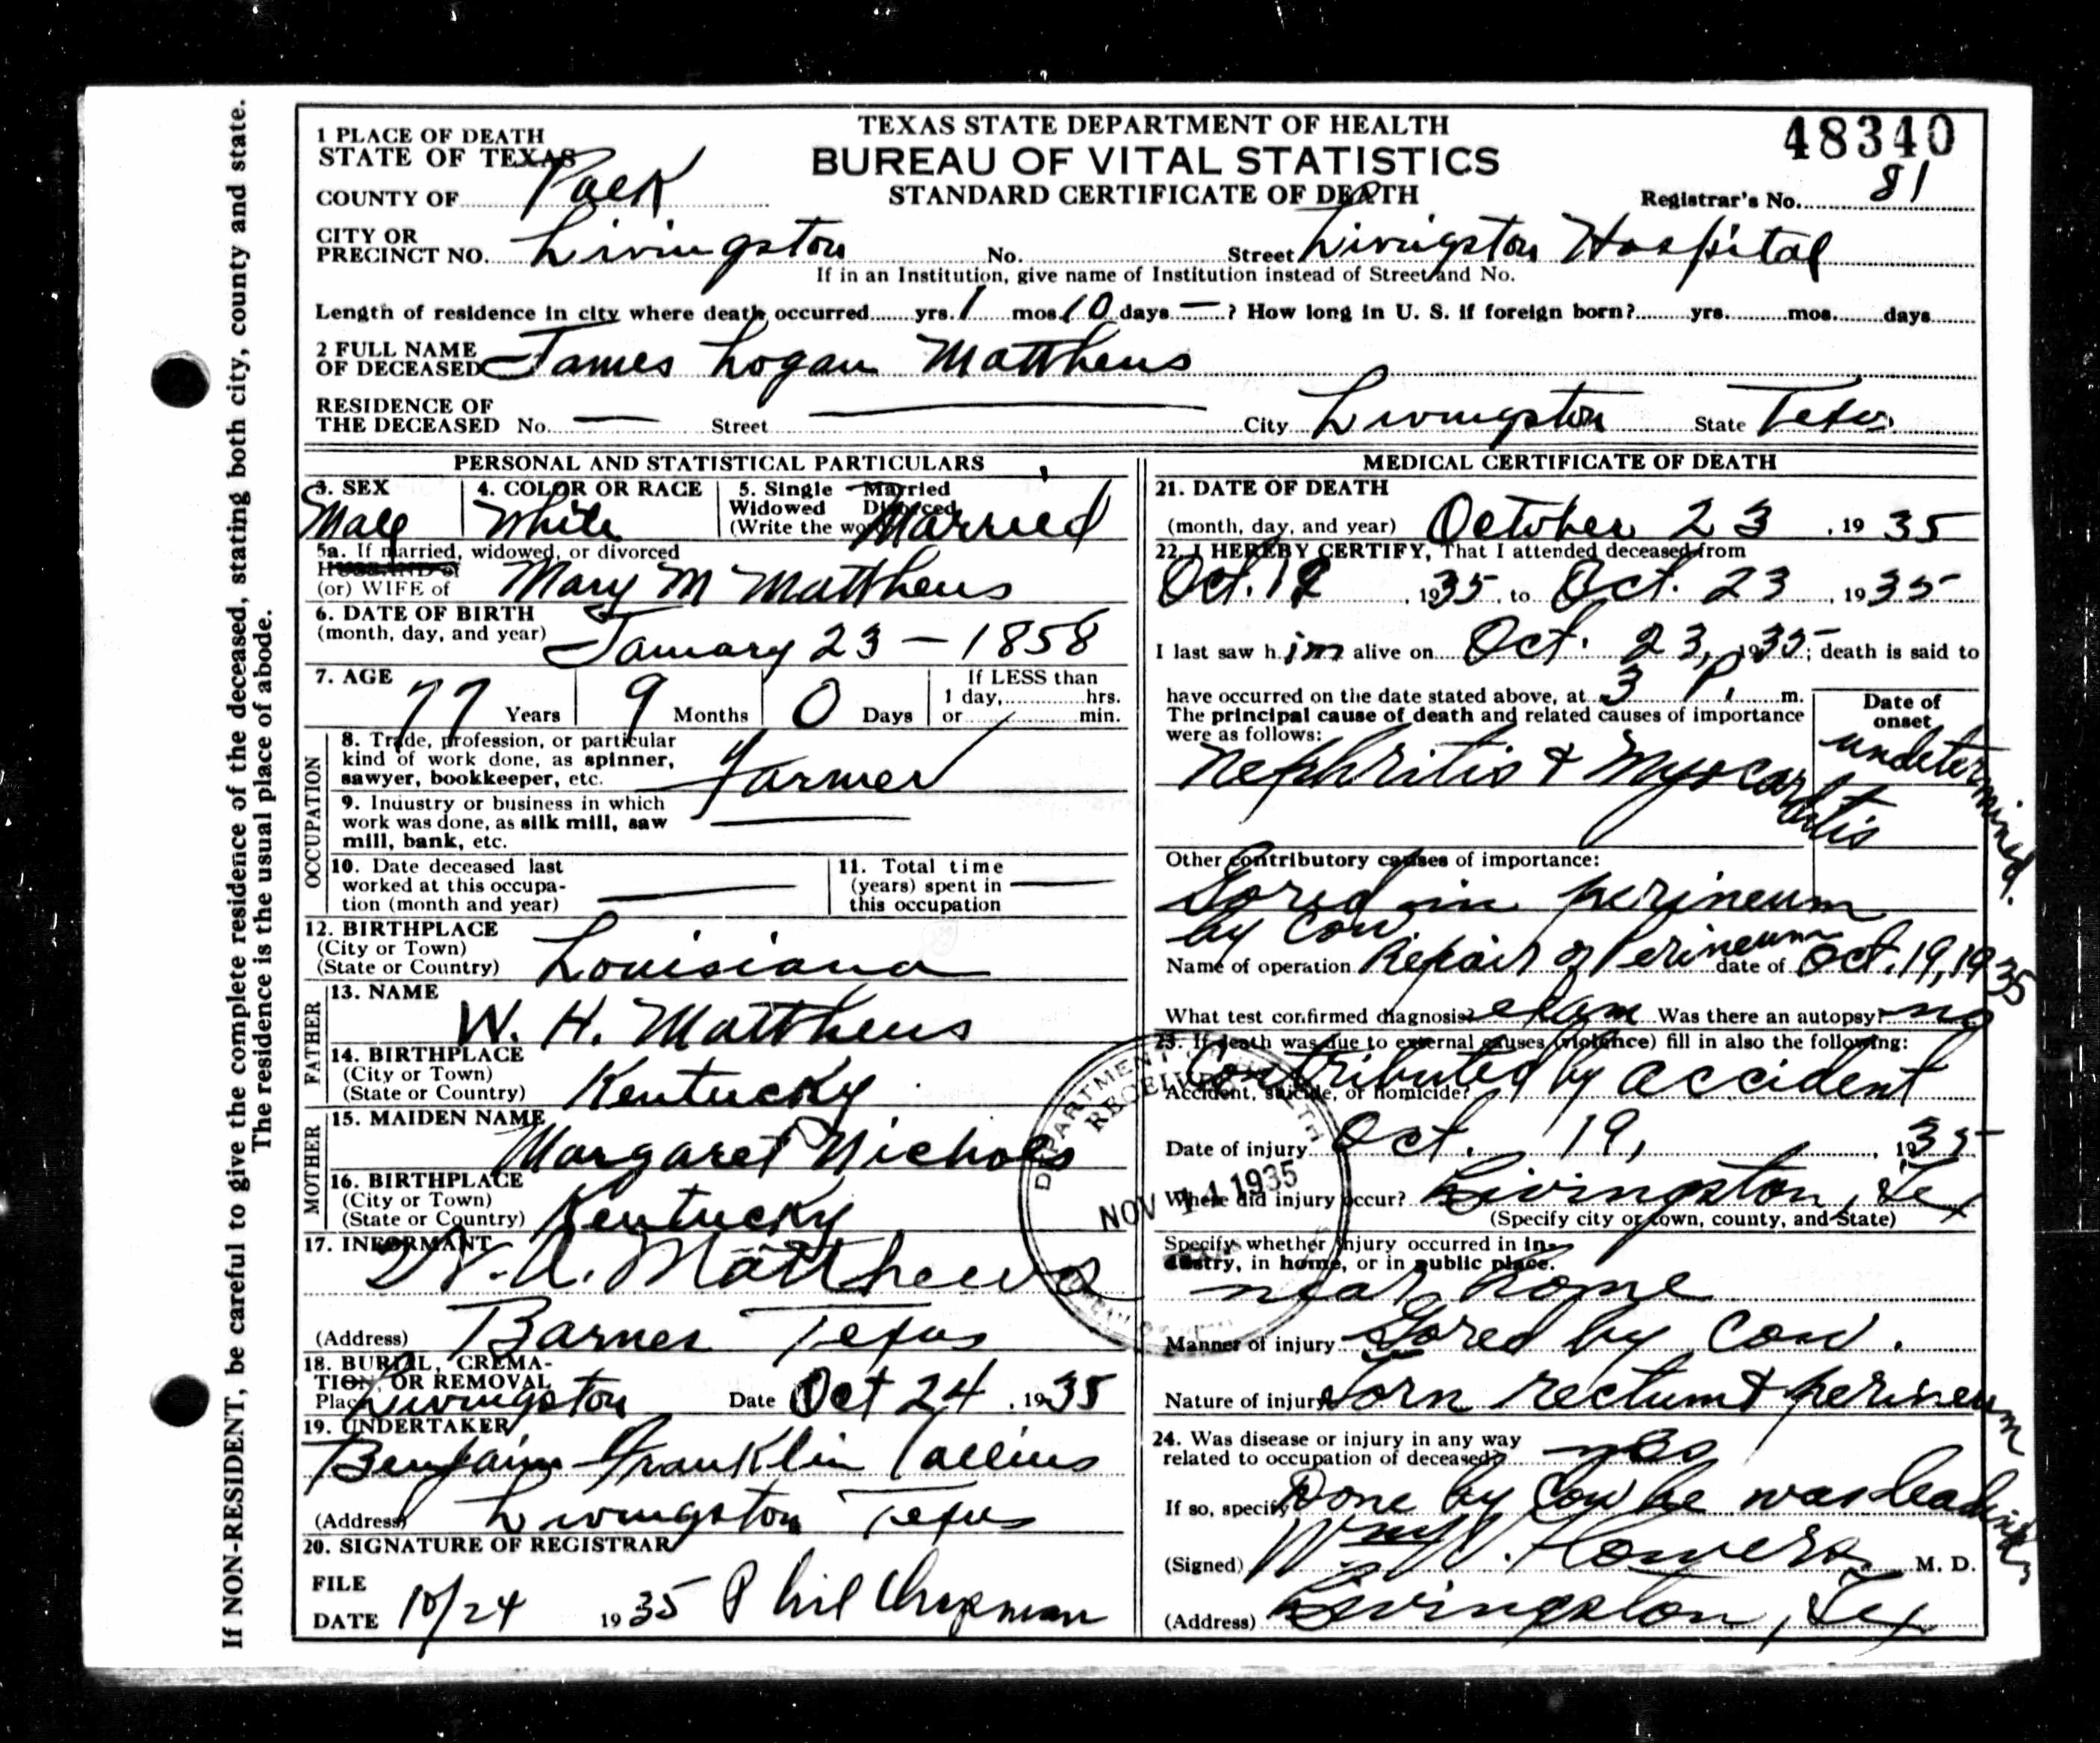 If NON-RESIDENT, be careful to give the complete residence of the deceased, stating both city, county and state.
The residence is the usual place of abode.
TEXAS STATE DEPARTMENT OF HEALTH
BUREAU OF VITAL STATISTICS
STANDARD CERTIFICATE OF DEATH
48340
Registrar's No. 81
1 PLACE OF DEATH
STATE OF TEXAS
COUNTY OF Polk
CITY OR PRECINCT NO. Livingston No. Street Livingston Hospital
If in an Institution, give name of Institution instead of Street and No.
Length of residence in city where death occurred yrs. 1 mos. 10 days — ? How long in U. S. if foreign born? yrs. mos. days
2 FULL NAME OF DECEASED James Logan Matthews
RESIDENCE OF THE DECEASED No. — Street — City Livingston State Texas
PERSONAL AND STATISTICAL PARTICULARS
3. SEX Male
4. COLOR OR RACE White
5. Single Married Widowed Divorced (Write the word) Married
5a. If married, widowed, or divorced
HUSBAND of
(or) WIFE of Mary M Matthews
6. DATE OF BIRTH
(month, day, and year) January 23 - 1858
7. AGE 77 Years 9 Months 0 Days If LESS than 1 day, hrs. or min.
OCCUPATION
8. Trade, profession, or particular kind of work done, as spinner, sawyer, bookkeeper, etc. Farmer
9. Industry or business in which work was done, as silk mill, saw mill, bank, etc. —
10. Date deceased last worked at this occupation (month and year) —
11. Total time (years) spent in this occupation —
12. BIRTHPLACE
(City or Town)
(State or Country) Louisiana
FATHER
13. NAME W. H. Matthews
14. BIRTHPLACE
(City or Town)
(State or Country) Kentucky
MOTHER
15. MAIDEN NAME Margaret Nichols
16. BIRTHPLACE
(City or Town)
(State or Country) Kentucky
17. INFORMANT W. A. Matthews
(Address) Barnes Texas
18. BURIAL, CREMATION, OR REMOVAL
Place Livingston Date Oct 24, 1935
19. UNDERTAKER
Benjamin Franklin Collins
(Address) Livingston Texas
20. SIGNATURE OF REGISTRAR
FILE DATE 10/24 1935 Phil Chapman
MEDICAL CERTIFICATE OF DEATH
21. DATE OF DEATH
(month, day, and year) October 23, 1935
22. I HEREBY CERTIFY, That I attended deceased from
Oct. 19, 1935, to Oct. 23, 1935
I last saw him alive on Oct. 23, 1935; death is said to
have occurred on the date stated above, at 3 P. m.
The principal cause of death and related causes of importance were as follows:
Date of onset
Nephritis & Myocarditis undetermined.
Other contributory causes of importance:
Gored in perineum
by cow
Name of operation Repair of Perineum date of Oct. 19, 1935
What test confirmed diagnosis? exam Was there an autopsy? no
23. If death was due to external causes (violence) fill in also the following:
Contributed by accident
Accident, suicide, or homicide?
Date of injury Oct. 19, 1935
Where did injury occur? Livingston, Tex
(Specify city or town, county, and State)
Specify whether injury occurred in industry, in home, or in public place.
near home
Manner of injury Gored by Cow.
Nature of injury Torn rectum & perineum
24. Was disease or injury in any way related to occupation of deceased? yes
If so, specify Done by Cow he was leading
(Signed) Flowers M. D.
(Address) Livingston, Tex
DEPARTMENT HEALTH
RECEIVED
NOV 11 1935